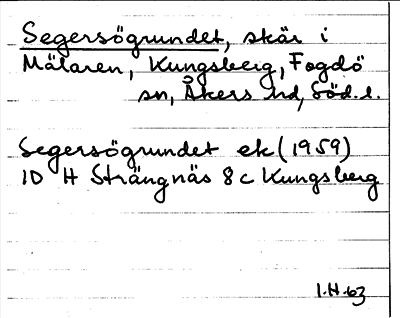 Segersögrundet, skär i
Mälaren, Kungsberg, Fogdö
sn, Åkers hd, Söd. l.
Segersögrundet ek (1959)
10 H Strängnäs 8 c Kungsberg
I.H.63